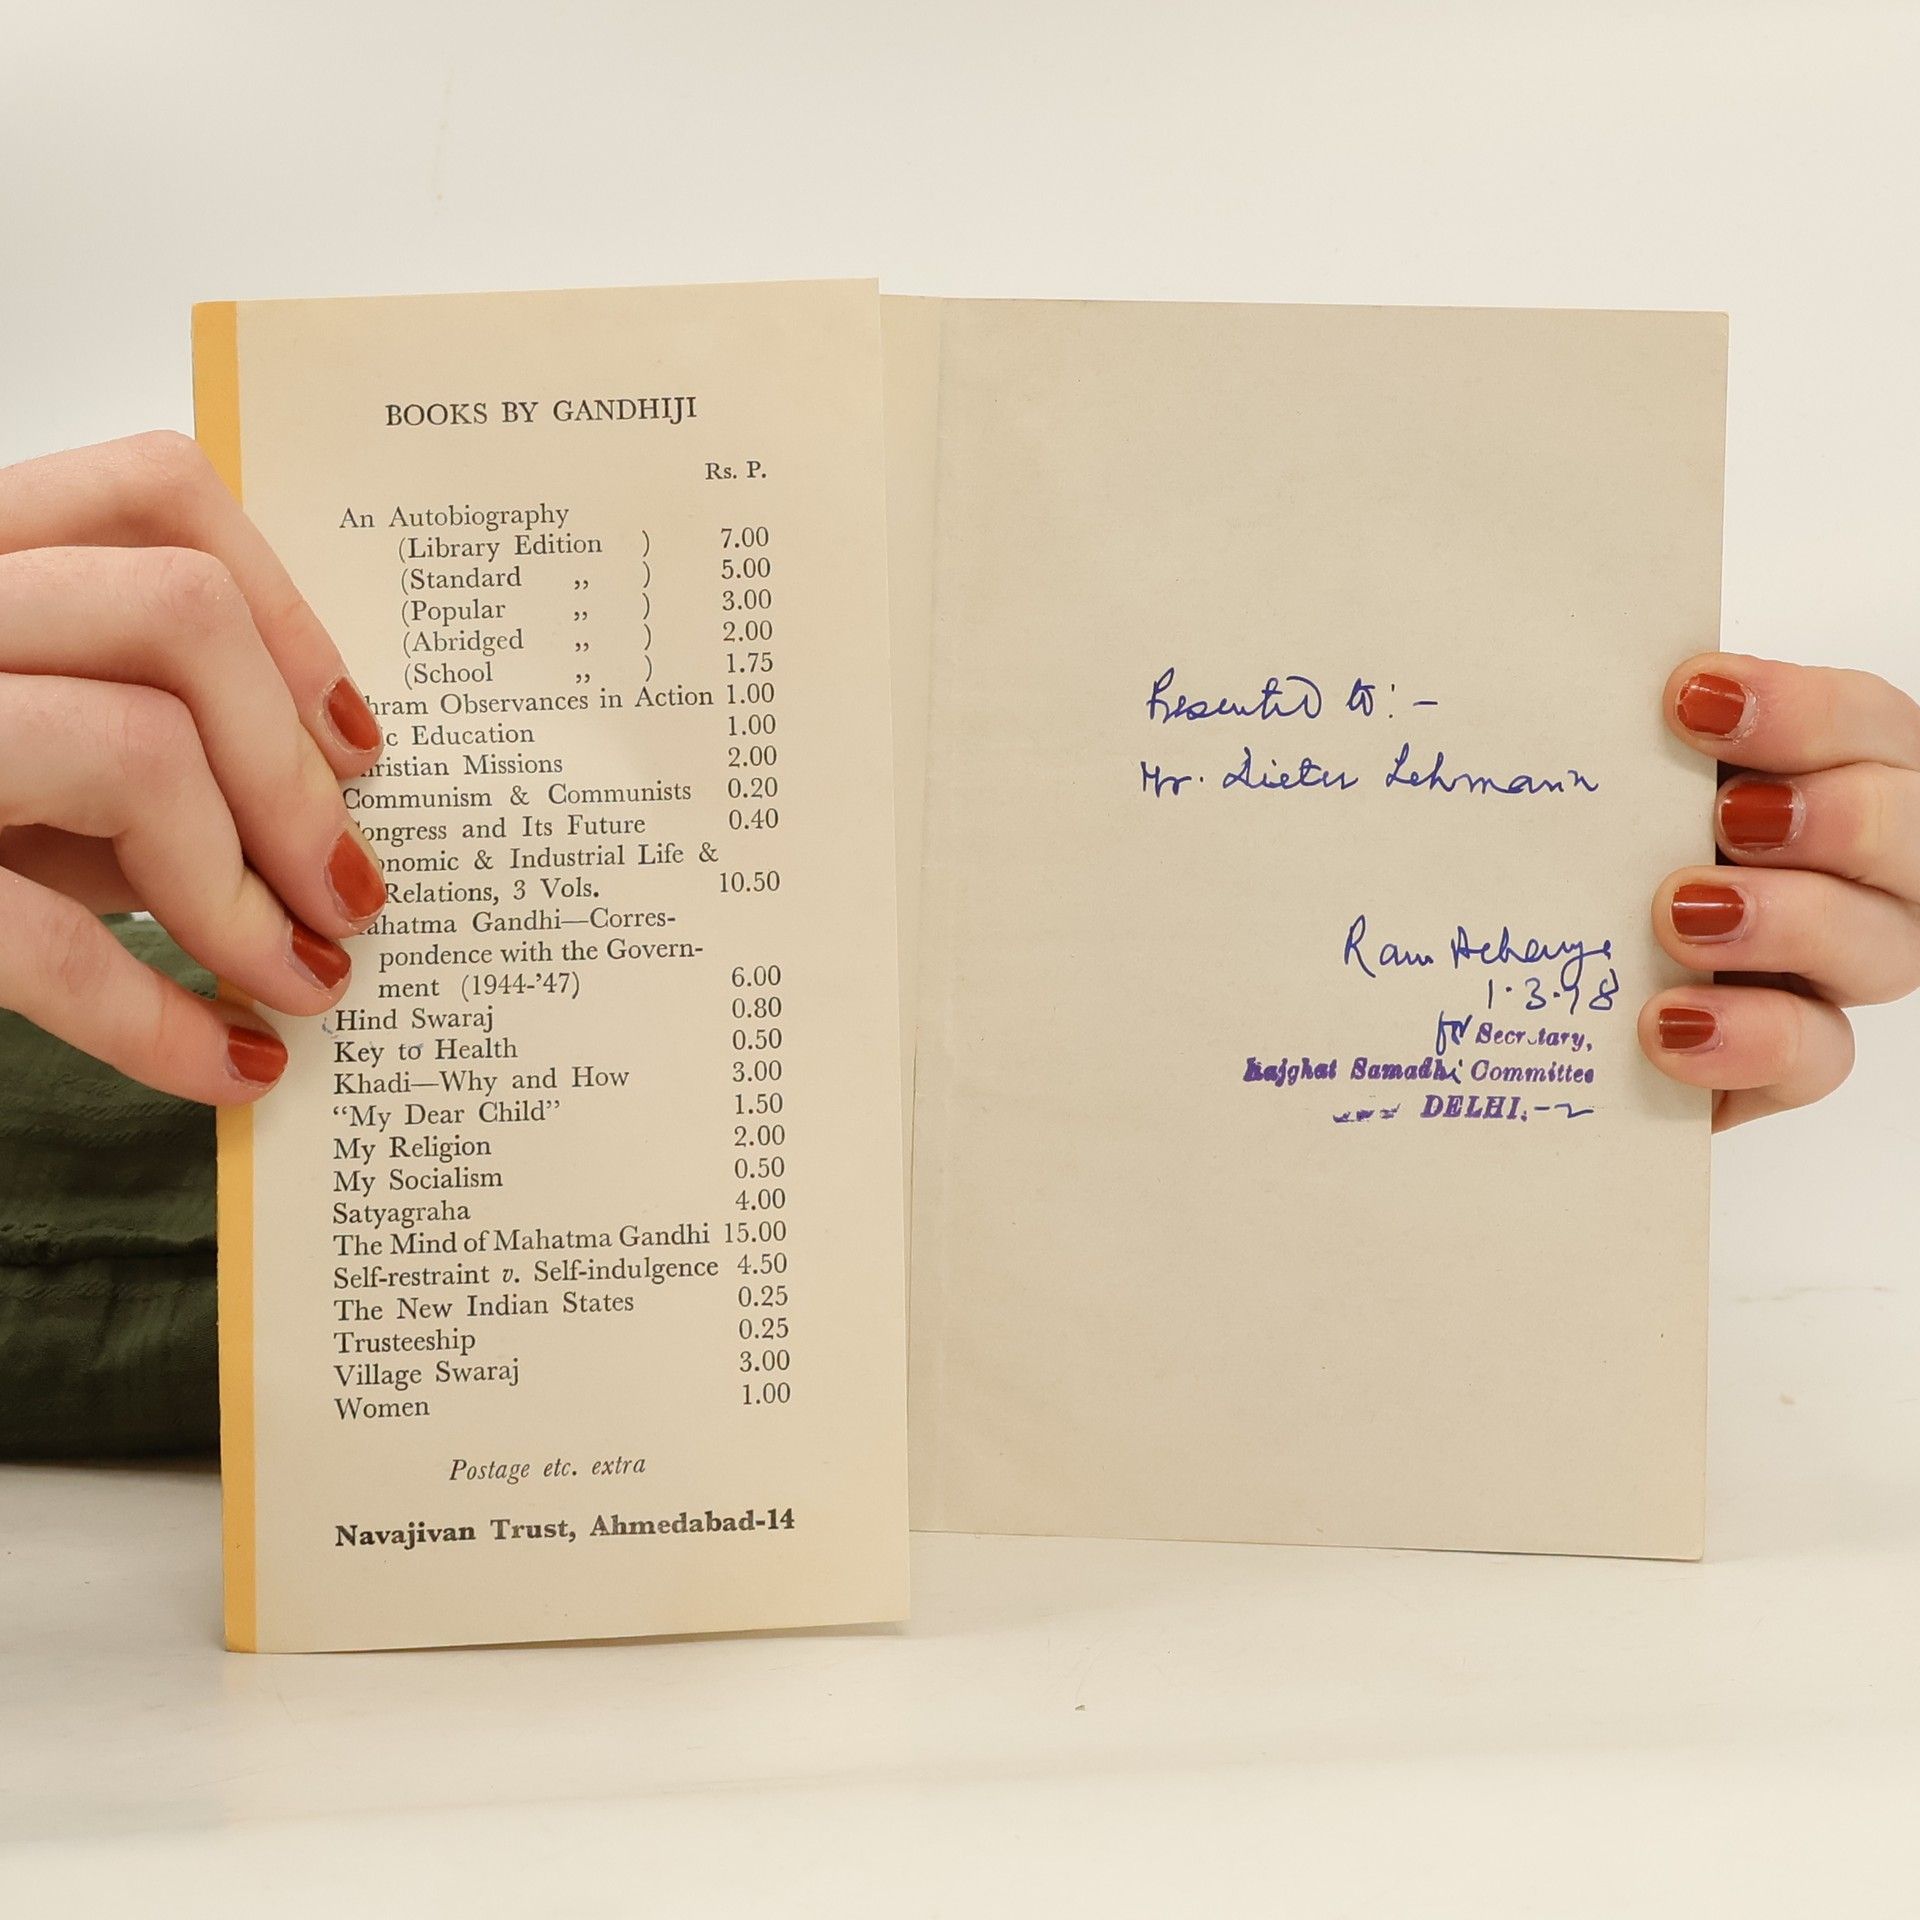 BOOKS BY GANDHIJI
Rs. P.
An Autobiography
(Library Edition ) 7.00
(Standard ,, ) 5.00
(Popular ,, ) 3.00
(Abridged ,, ) 2.00
(School ,, ) 1.75
hram Observances in Action 1.00
ic Education 1.00
ristian Missions 2.00
Communism & Communists 0.20
ongress and Its Future 0.40
onomic & Industrial Life &
Relations, 3 Vols. 10.50
ahatma Gandhi—Corres-
pondence with the Govern-
ment (1944-'47) 6.00
Hind Swaraj 0.80
Key to Health 0.50
Khadi—Why and How 3.00
“My Dear Child” 1.50
My Religion 2.00
My Socialism 0.50
Satyagraha 4.00
The Mind of Mahatma Gandhi 15.00
Self-restraint v. Self-indulgence 4.50
The New Indian States 0.25
Trusteeship 0.25
Village Swaraj 3.00
Women 1.00
Postage etc. extra
Navajivan Trust, Ahmedabad-14
Presented to:-
Mr. Dieter Lehmann
Ram
1.3.78
for Secretary,
Rajghat Samadhi Committee
DELHI.-2